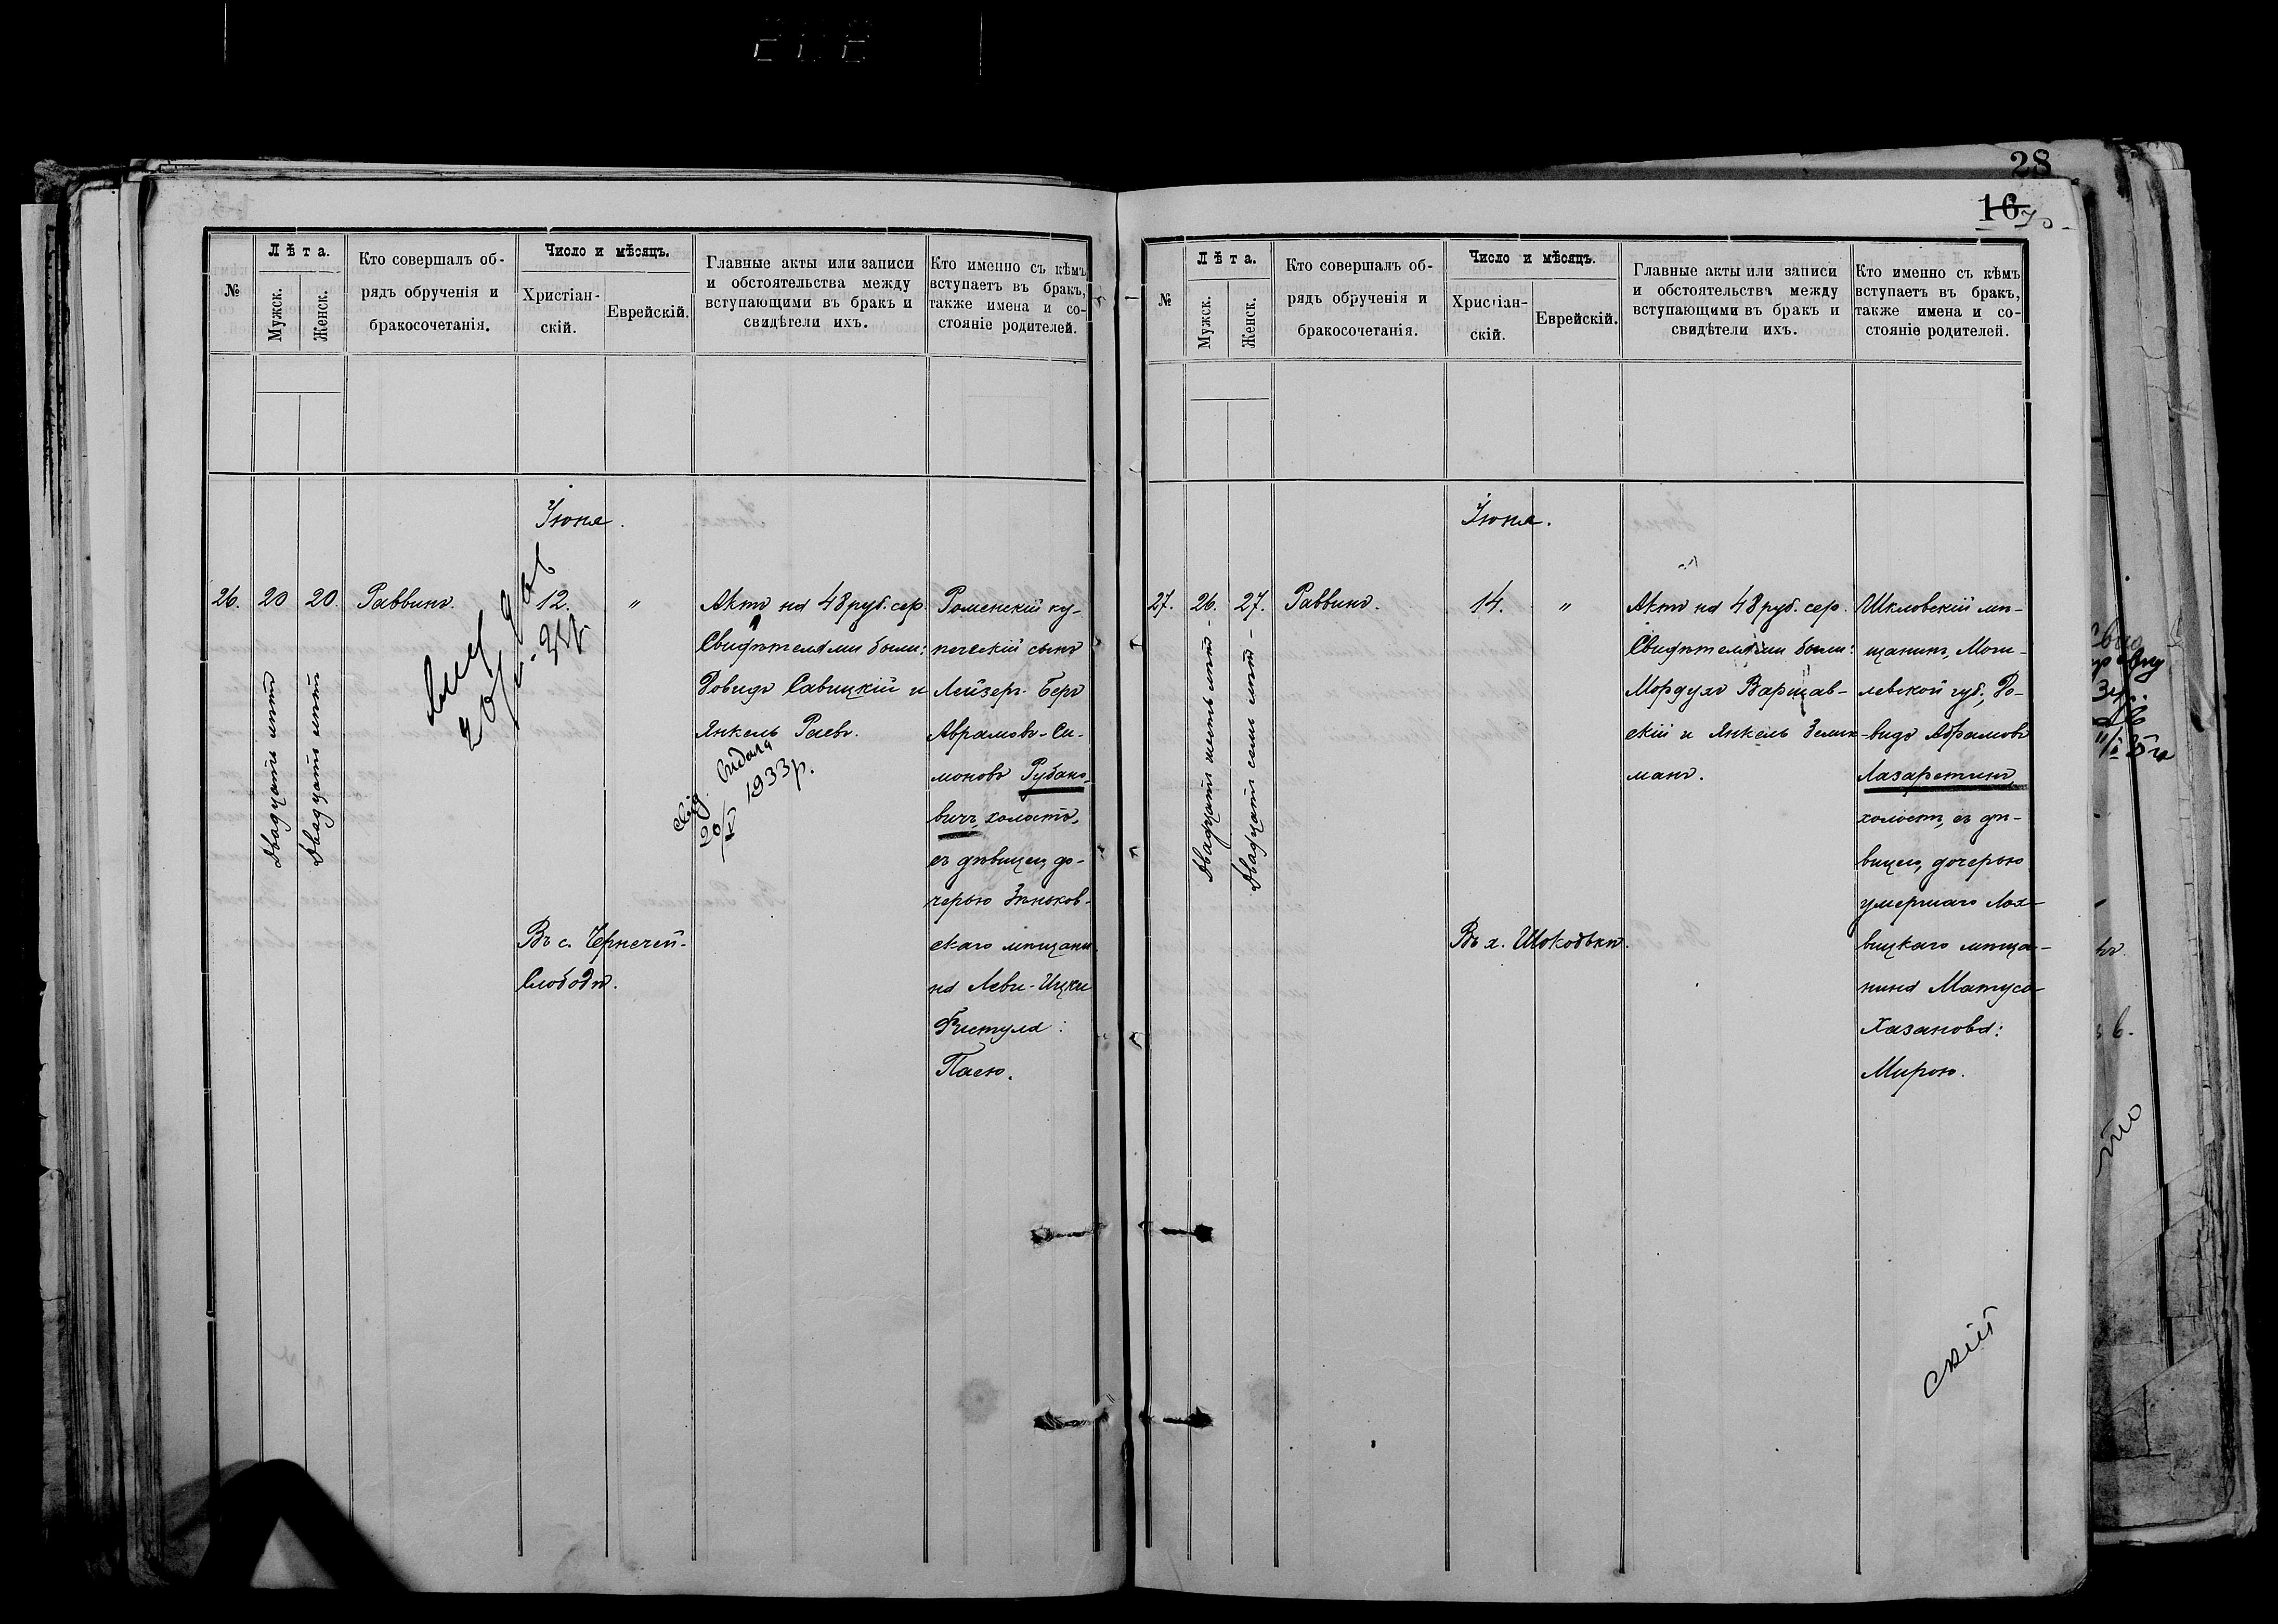 28
16
№
Лѣта.
Мужск.
Женск.
Кто совершалъ об-
рядъ обрученія и
бракосочетанія.
Число и мѣсяцъ.
Христіан-
скій.
Еврейскій.
Главные акты или записи
и обстоятельства между
вступающими въ бракъ и
свидѣтели ихъ.
Кто именно съ кѣмъ
вступаетъ въ бракъ,
также имена и со-
стояніе родителей.
Іюня.
26.
20
20.
Двадцать лѣтъ
Двадцать лѣтъ
Раввинъ.
12.
"
Въ с. Чернечей-
Слободѣ.
Актъ на 48 руб. сер.
Свидѣтелями были:
Довидъ Савицкій и
Янкель Раевъ.
видала
20/V 1933 р.
Роменскій ку-
печескій сынъ
Лейзеръ-Беръ
Аврамовъ-Си-
моновъ Рубано-
вичъ, холостъ,
съ дѣвицею, до-
черью Зѣньков-
скаго мѣщани-
на Леви-Ицки
Фистула:
Пасею.
№
Лѣта.
Мужск.
Женск.
Кто совершалъ об-
рядъ обрученія и
бракосочетанія.
Число и мѣсяцъ.
Христіан-
скій.
Еврейскій.
Главные акты или записи
и обстоятельства между
вступающими въ бракъ и
свидѣтели ихъ.
Кто именно съ кѣмъ
вступаетъ въ бракъ,
также имена и со-
стояніе родителей.
Іюня.
27.
26.
27.
Двадцать шесть лѣтъ
Двадцать семь лѣтъ
Раввинъ.
14.
"
Въ х.
Актъ на 48 руб. сер.
Свидѣтелями были:
Мордухъ Варшав-
скій и Янкель Зельк-
манъ.
Шкловскій мѣ-
щанинъ, Моги-
левской губ., До-
видъ Абрамовъ
Лазаретинъ,
холостъ, съ дѣ-
вицею, дочерью
умершаго Лох-
вицкаго мѣща-
нина Матуса
Хазанова:
Мирою.
скій